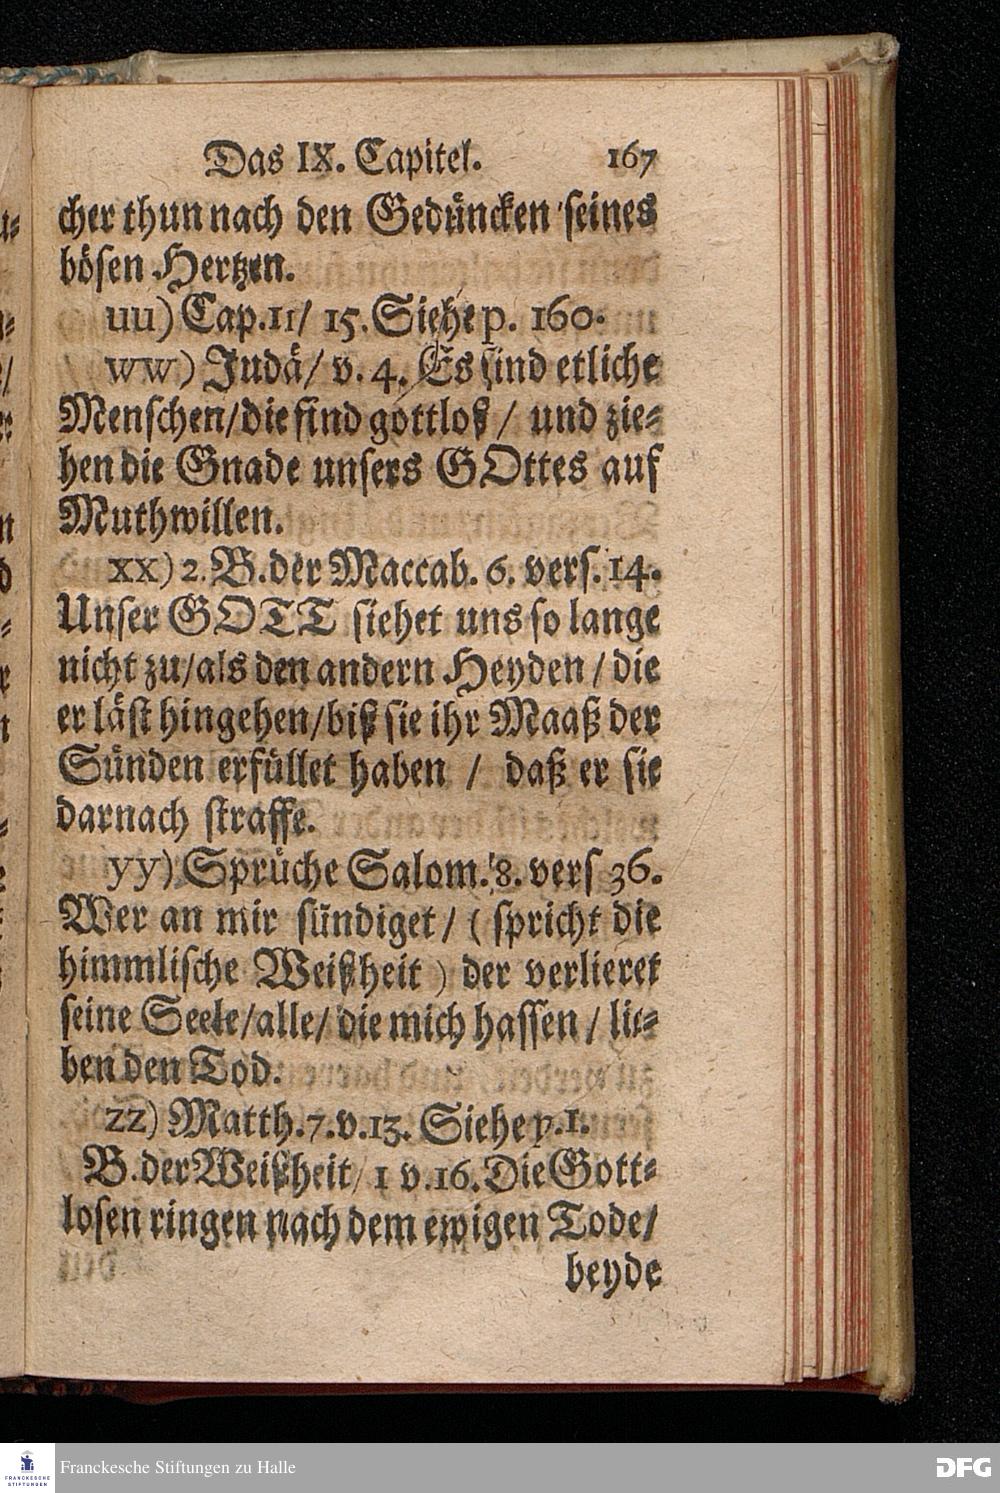 Das IX. Capitel. 167
cher thun nach den Gedüncken seines
bösen Hertzen.
uu) Cap. 11/ 15. Siehe p. 160.
ww) Judä/ v. 4. Es sind etliche
Menschen/ die sind gottloß/ und zie-
hen die Gnade unsers GOttes auf
Muthwillen.
xx) 2. B. der Maccab. 6. vers. 14.
Unser GOTT siehet uns so lange
nicht zu/ als den andern Heyden/ die
er läst hingehen/ biß sie ihr Maaß der
Sünden erfüllet haben/ daß er sie
darnach straffe.
yy) Sprüche Salom. 8. vers 36.
Wer an mir sündiget/ ( spricht die
himmlische Weißheit ) der verlieret
seine Seele/ alle/ die mich hassen/ lie-
ben den Tod.
zz) Matth. 7. v. 13. Siehe p. 1.
B. der Weißheit/ 1 v. 16. Die Gott-
losen ringen nach dem ewigen Tode/
beyde
Franckesche Stiftungen zu Halle
DFG
FRANCKESCHE
STIFTUNGEN